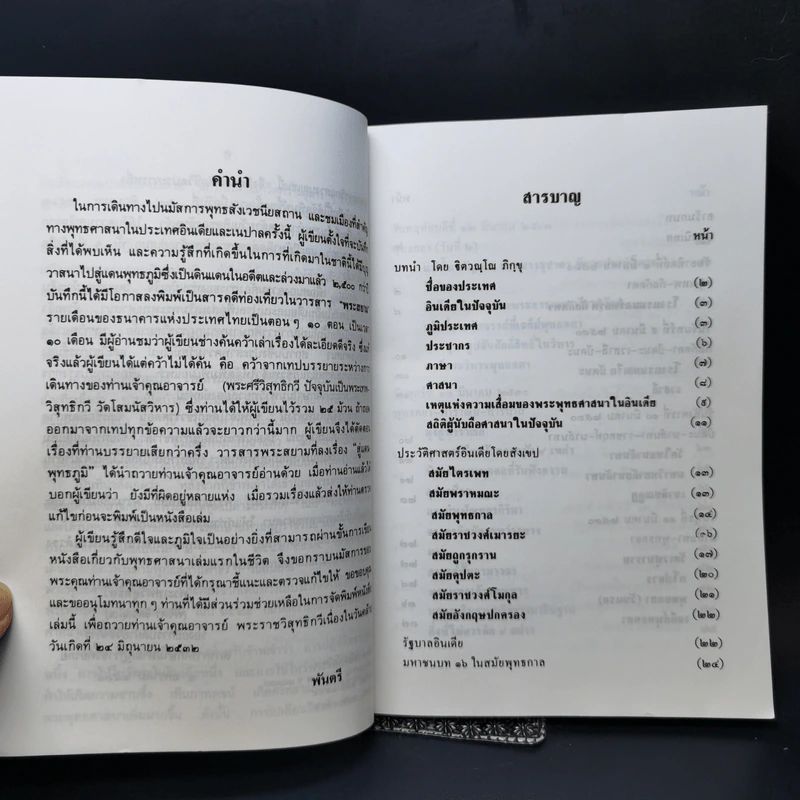 คำนำ
ในการเดินทางไปนมัสการพุทธสังเวชนียสถาน และชมเมืองที่สำคัญ
ทางพุทธศาสนาในประเทศอินเดียและเนปาลครั้งนี้ ผู้เขียนตั้งใจที่จะบันทึก
สิ่งที่ได้พบเห็น และความรู้สึกที่เกิดขึ้นในการที่เกิดมาในชาตินี้ได้มี
วาสนาไปสู่แดนพุทธภูมิซึ่งเป็นดินแดนในอดีตและล่วงมาแล้ว ๒,๕๐๐ กว่าปี
บันทึกนี้ได้มีโอกาสลงพิมพ์เป็นสารคดีท่องเที่ยวในวารสาร "พระสยาม"
รายเดือนของธนาคารแห่งประเทศไทยเป็นตอนๆ ๑๐ ตอน เป็นเวลา
๑๐ เดือน มีผู้อ่านชมว่าผู้เขียนช่างค้นคว้าเล่าเรื่องได้ละเอียดดีจริง ซึ่ง
จริงแล้วผู้เขียนได้แต่คว้าไม่ได้ค้น คือ คว้าจากเทปบรรยายระหว่างการ
เดินทางของท่านเจ้าคุณอาจารย์ (พระศรีวิสุทธิกวี ปัจจุบันเป็นพระเทพ
วิสุทธิกวี วัดโสมนัสวิหาร) ซึ่งท่านได้ให้ผู้เขียนไว้รวม ๒๕ ม้วน ถ้าถอด
ออกมาจากเทปทุกข้อความแล้วจะยาวกว่านี้มาก ผู้เขียนจึงได้ตัดตอน
เรื่องที่ท่านบรรยายเสียกว่าครึ่ง วารสารพระสยามที่ลงเรื่อง "สู่แดน
พุทธภูมิ" ได้นำถวายท่านเจ้าคุณอาจารย์อ่านด้วย เมื่อท่านอ่านแล้วได้
บอกผู้เขียนว่า ยังมีที่ผิดอยู่หลายแห่ง เมื่อรวมเรื่องแล้วส่งให้ท่านตรวจ
แก้ไขก่อนจะพิมพ์เป็นหนังสือเล่ม
ผู้เขียนรู้สึกดีใจและภูมิใจเป็นอย่างยิ่งที่สามารถผ่านขั้นการเขียน
หนังสือเกี่ยวกับพุทธศาสนาเล่มแรกในชีวิต จึงขอกราบนมัสการขอบ
พระคุณท่านเจ้าคุณอาจารย์ที่ได้กรุณาชี้แนะและตรวจแก้ไขให้ ขอขอบคุณ
และขออนุโมทนาทุกๆ ท่านที่ได้มีส่วนร่วมช่วยเหลือในการจัดพิมพ์หนังสือ
เล่มนี้ เพื่อถวายท่านเจ้าคุณอาจารย์ พระราชวิสุทธิกวีเนื่องในวันคล้าย
วันเกิดที่ ๒๔ มิถุนายน ๒๕๓๒
พันตรี
สารบาญ
หน้า
บทนำ โดย ฐิตวณฺโณ ภิกฺขุ
ชื่อของประเทศ (๒)
อินเดียในปัจจุบัน (๓)
ภูมิประเทศ (๓)
ประชากร (๖)
ภาษา (๗)
ศาสนา (๘)
เหตุแห่งความเสื่อมของพระพุทธศาสนาในอินเดีย (๙)
สถิติผู้นับถือศาสนาในปัจจุบัน (๑๑)
ประวัติศาสตร์อินเดียโดยสังเขป
สมัยไตรเพท (๑๓)
สมัยพราหมณะ (๑๓)
สมัยพุทธกาล (๑๔)
สมัยราชวงศ์เมารยะ (๑๖)
สมัยถูกรุกราน (๑๗)
สมัยคุปตะ (๒๐)
สมัยราชวงศ์โมกุล (๒๑)
สมัยอังกฤษปกครอง (๒๒)
รัฐบาลอินเดีย (๒๒)
มหาชนบท ๑๖ ในสมัยพุทธกาล (๒๔)